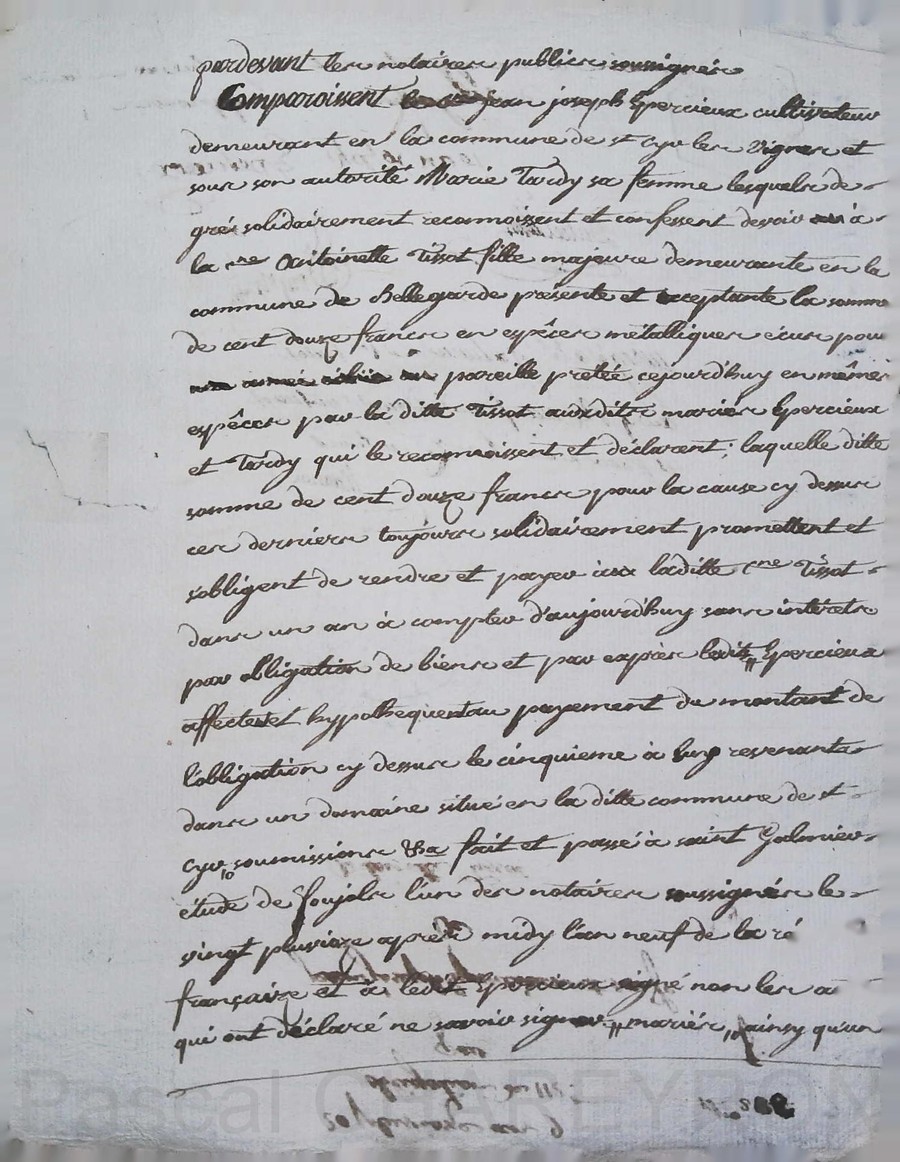 pardevant les notaires publics soussignés
Comparoissent jean joseph Epercieux cultivateur
demeurant en la commune de st cyr les vignes et
sous son autorité Marie Tardy sa femme lesquels de
gré solidairement reconnoissent et confessent devoir à
la cne Antoinette Tissot fille majeure demeurante en la
commune de Bellegarde présente et acceptante la somme
de cent douze francs en espêces métalliques écus pour
pareille pretée cejourd'huy en mêmes
espêces par la ditte Tissot auxdits mariés Epercieux
et Tardy qui le reconnoissent et déclarent; laquelle ditte
somme de cent douze francs pour la cause cy dessus
ces derniers toujours solidairement promettent et
s'obligent de rendre et payer à laditte cne Tissot
dans un an à compter d'aujourd'huy sans intérêts
par obligation de biens et par exprès ledit Epercieux
affectent hypothequentau payement du montant de
l'obligation cy dessus le cinquieme à luy revenant
dans un domaine situé en la ditte commune de st
cyr, soumissions &a fait et passé à saint Galmier
étude de Foujols l'un des notaires soussignés le
vingt pluviose après midy l'an neuf de la ré
française et a ledit Epercieux signé non les a
qui ont déclaré ne savoir signer, mariés, ainsy qu'un
Pascal CHAREYRON